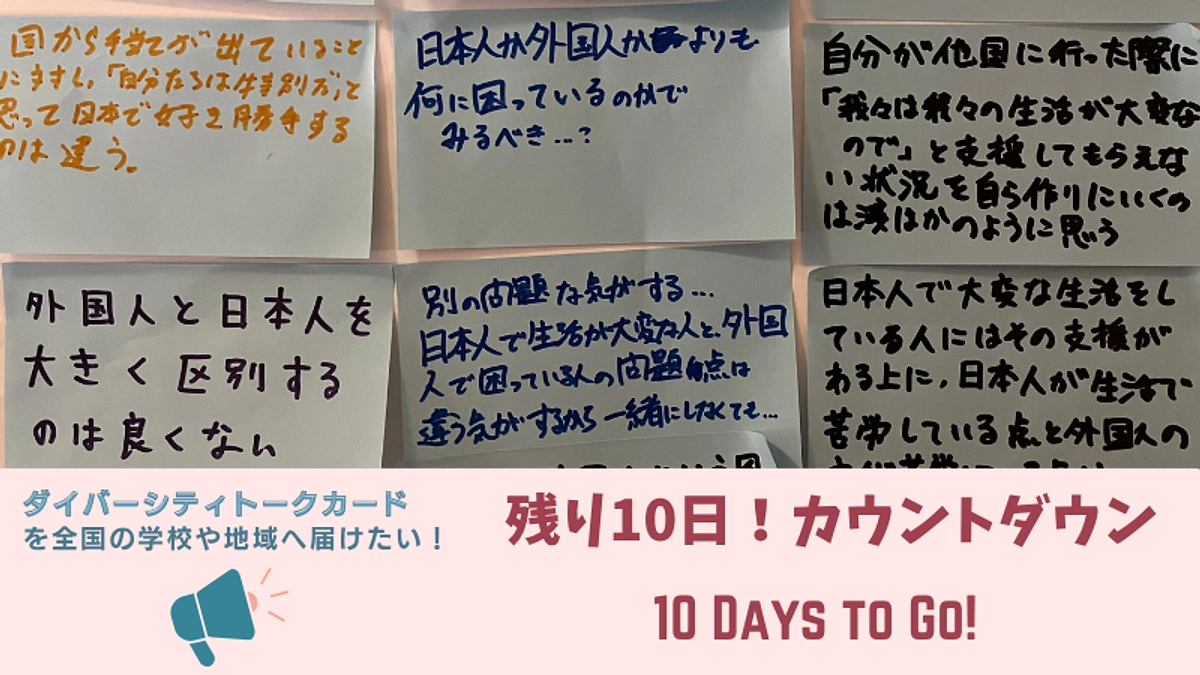 国から手当てが出ていること
に対し、「自分たちは特別だ」と
思って日本で好き勝手する
のは違う。
日本人か外国人かよりも
何に困っているのかで
みるべき…?
自分が他国に行った際に
「我々は我々の生活が大変な
ので」と支援してもらえな
い状況を自ら作りにいくの
は浅はかのように思う
外国人と日本人を
大きく区別する
のは良くない
別の問題な気がする…
日本人で生活が大変な人と、外国
人で困っている人の問題点は
違う気がするから一緒にしなくても…
日本人で大変な生活をし
ている人にはその支援が
ある上に、日本人が生活で
苦労している点と外国人の
ダイバーシティトークカード
を全国の学校や地域へ届けたい!
残り10日!カウントダウン
10 Days to Go!